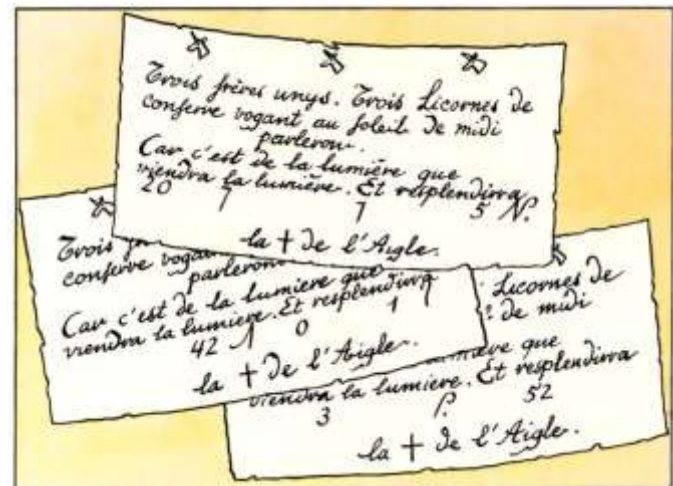 Trois frères unys. Trois Licornes de
conserve vogant au soleil de midi
parleron.
Car c'est de la lumière que
viendra la lumière. Et resplendira
20 5 N.
la † de l'Aigle.
Trois
conserve
parleron
Car c'est de la lumiere que
viendra la lumiere. Et resplendira
42 0
la † de l'Aigle.
Licornes de
de midi
que
viendra la lumiere. Et resplendira
3 52
la † de l'Aigle.